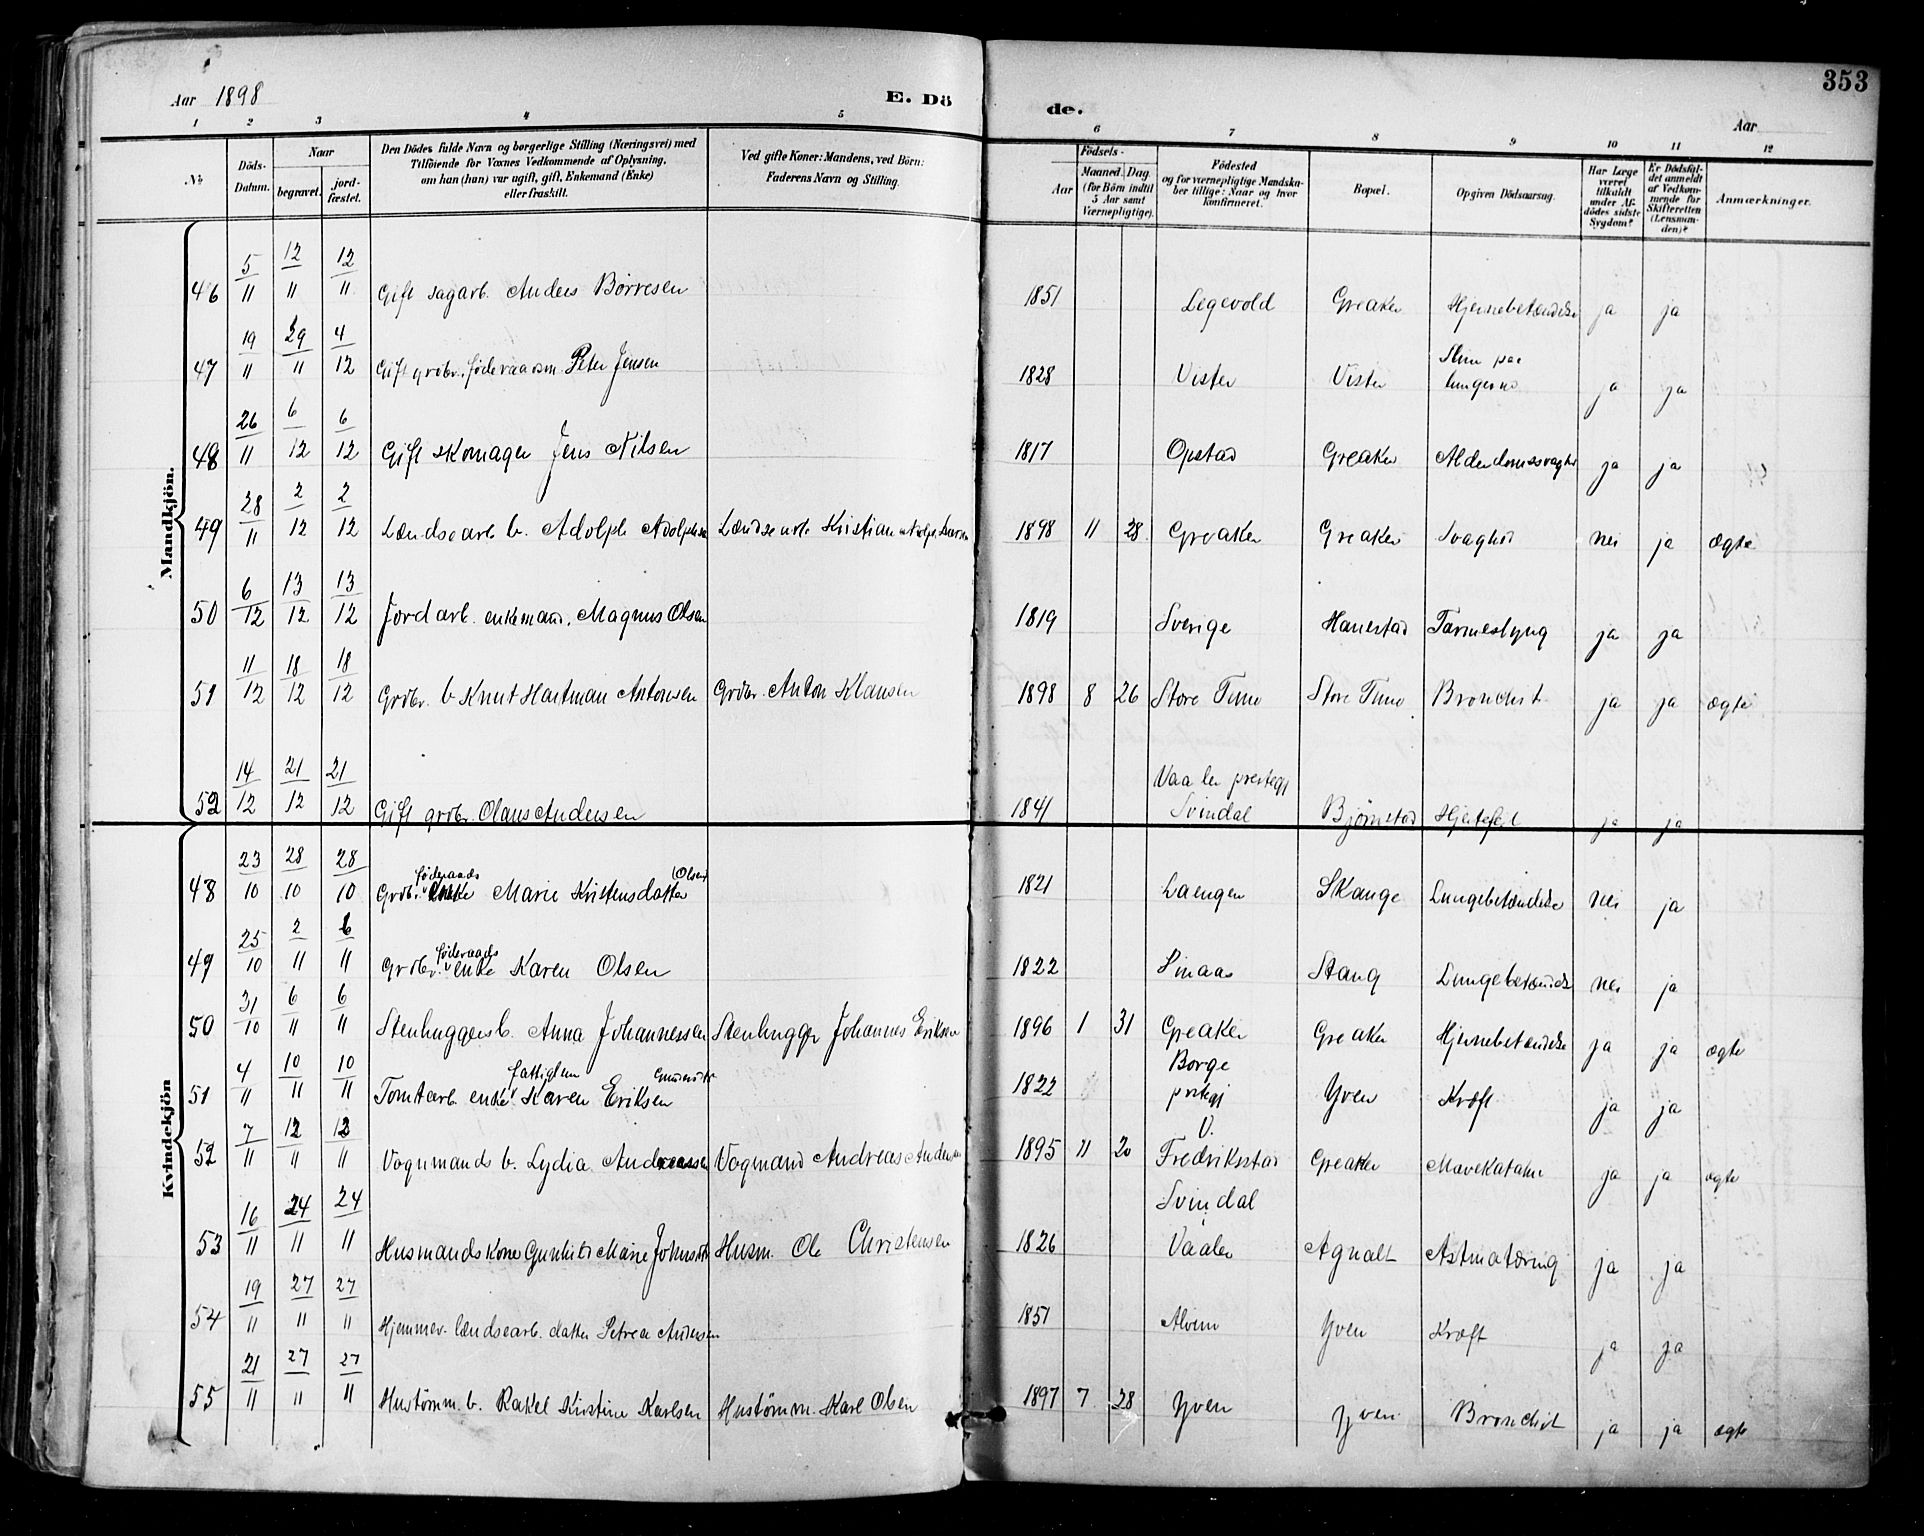 353
Aar 1898 E. Dö de. Aar
1 2 3 4 5 6 7 8 9 10 11 12
No
Döds-Datum.
Naar
begravet.
jord-fæstet.
Den Dödes fulde Navn og borgerlige Stilling (Næringsvei) med
Tilföiende for Voxnes Vedkommende af Oplysning,
om han (hun) var ugift, gift, Enkemand (Enke)
eller fraskilt.
Ved gifte Koner: Mandens, ved Börn:
Faderens Navn og Stilling.
Födsels-
Aar
Maaned. Dag.
(for Börn indtil
5 Aar samt
Værnepligtige).
Födested
og for værnepligtige Mandska-
ber tillige: Naar og hvor
konfirmeret.
Bopæl.
Opgiven Dödsaarsag.
Har Læge
været
tilkaldt
under Af-
dödes sidste
Sygdom?
Er Dödsfal-
det anmeldt
af Vedkom-
mende for
Skifteretten
(Lensman-
den)?
Anmærkninger.
Mandkjön.
46 5/11 12/11 12/11 Gift sagarb. Anders Børresen 1851 Legevold Greaker Hjernebetændelse ja ja
47 19/11 29/11 4/12 Gift grdbr. føderaadsm. Peter Jensen 1828 Vister Vister Slim paa
lungerne ja ja
48 26/11 6/12 6/12 Gift skomager Jens Nilsen 1817 Opstad Greaker Alderdomssvaghed ja ja
49 28/11 2/12 2/12 Lændsearb b. Adolph Adolphsen Lændsearb. Kristian Adolph Larsen 1898 11 28. Greaker Greaker Svaghed nei ja ægte
50 6/12 13/12 13/12 Jordarb. enkemand. Magnus Olsen 1819 Sverige Hanestad Tarmeslyng ja ja
51 11/12 18/12 18/12 Grdbr. b Knut Hartman Antonsen Grdbr. Anton Klausen 1898 8 26 Store Tune Store Tune Bronchit ja ja ægte
52 14/12 21/12 21/12 Gift grdbr. Olaus Andersen 1841 Vaaler prestegj
Svindal Bjørnstad Hjertefeil ja ja
Kvindekjön
48 23/10 28/10 28/10 Grdbr. føderaads enke Marie Kristensdatter (Olsen) 1821 Laengen Skauge Lungebetændelse nei ja
49 25/10 2/11 6/11 Grdbr. føderaads enke Karen Olsen 1822 Smaas Stang Lungebetændelse nei ja
50 31/10 6/11 6/11 Stenhuggers b. Anna Johannessen Stenhugger Johannes Eriksen 1896 1 31 Greaker Greaker Hjernebetændelse ja ja ægte
51 4/11 10/11 10/11 Tomtarb. enke fattiglem Karen Eriksen 1822 Borge
prstegj Yven Kræft ja ja
52 7/11 12/11 12/11 Vognmands b. Lydia Andreassen Vogmand Andreas Andersen 1895 11 20 V.
Fredriksstad Greaker Mavekatahr ja ja ægte
53 16/11 24/11 24/11 Husmands kone Gunhild Marie Johnsdtr Husm. Ole Christensen 1826 Svindal
Vaaler Agnalt Astmatæring ja ja
54 19/11 27/11 27/11 Hjemmev. lændsearb. datter Petrea Andersen 1851 Alvim Yven Kræft ja ja
55 21/11 27/11 27/11 Hustømm. b. Rakel Kristine Karlsen Hustømm. Karl Olsen 1897 7 28 Yven Yven Bronchit ja ja ægte